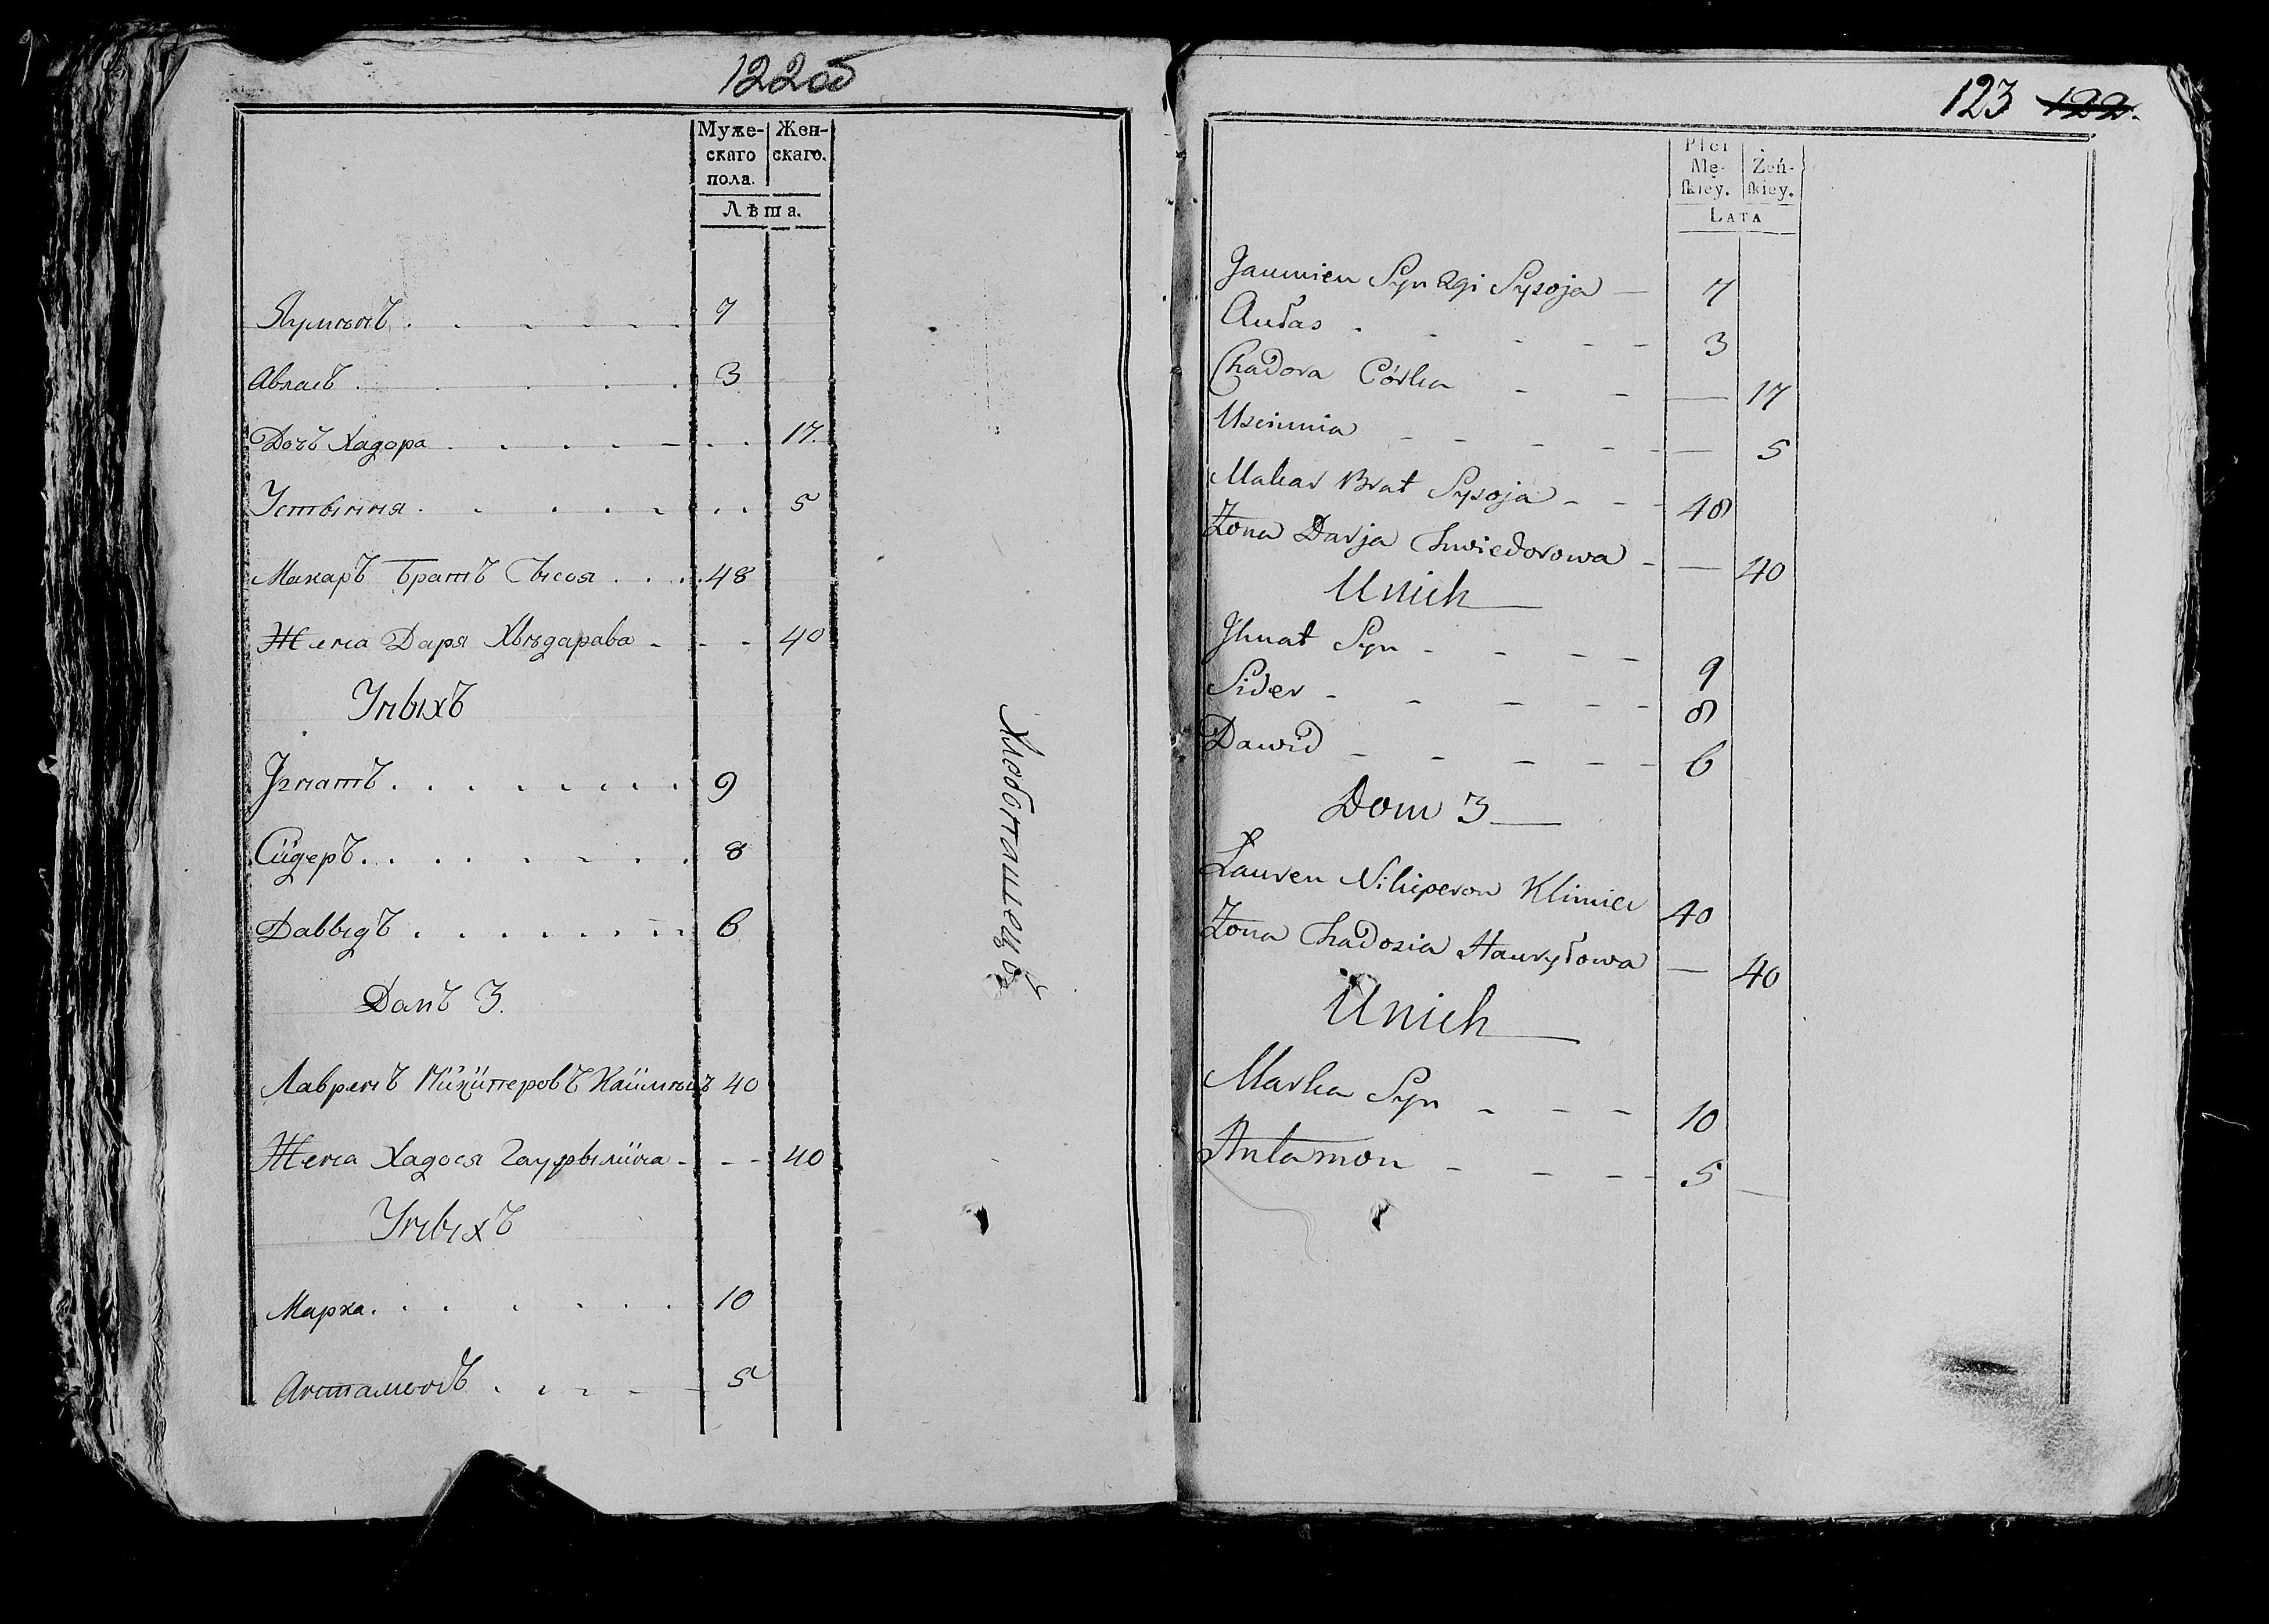 122об
Муже- Жен-
скаго скаго.
пола.
Лѣта.
Яумѣнъ 7
Авласъ 3
Дочъ Хадора 17.
Устыння 5
Макаръ Братъ Сысоя 48
Жена Даря Хвѣдарава 40
У ныхъ
Ігнатъ 9
Сидеръ 8
Давыдъ 6
Дамъ 3.
Лавренъ 40
Жена Хадося 40
У ныхъ
Марка 10
Антамонъ 5
Хлѣбопашецъ
123 122.
Płci
Mę- Żeń-
skiey. skiey.
LATA
Jaumien Syn 2gi Sysoja 7
Aułas 3
Chadora Córka 17
Uscinnia 5
Makar Brat Sysoja 48
Żona Darja Chwiedorowa 40
U nich
Ihnat Syn 9
Sider 8
Dawid 6
Dom 3
Lauren Nikiperow Klimiec 40
Żona Chadosia Hauryłowa 40
U nich
Marka Syn 10
Antamon 5